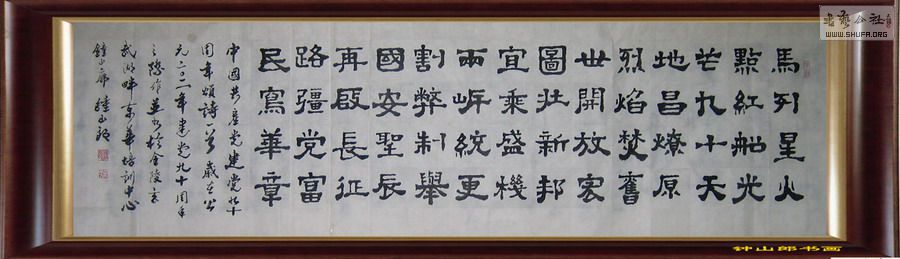 馬列星火
點紅船光
芒九十天
地昌燎原
烈焰焚舊
世開放宏
圖壯新邦
宜乘盛機
兩岸統更
割弊制舉
國安聖辰
再啟長征
路疆党富
民寫華章
中国共產党建党九十
周年頌詩一首歲在公
元二〇一一年建党九十周年
之際作並書於金陵玄
武湖畔東華培訓中心
鍾山郎
書藝公社
WWW.SHUFA.ORG
钟山郎书画